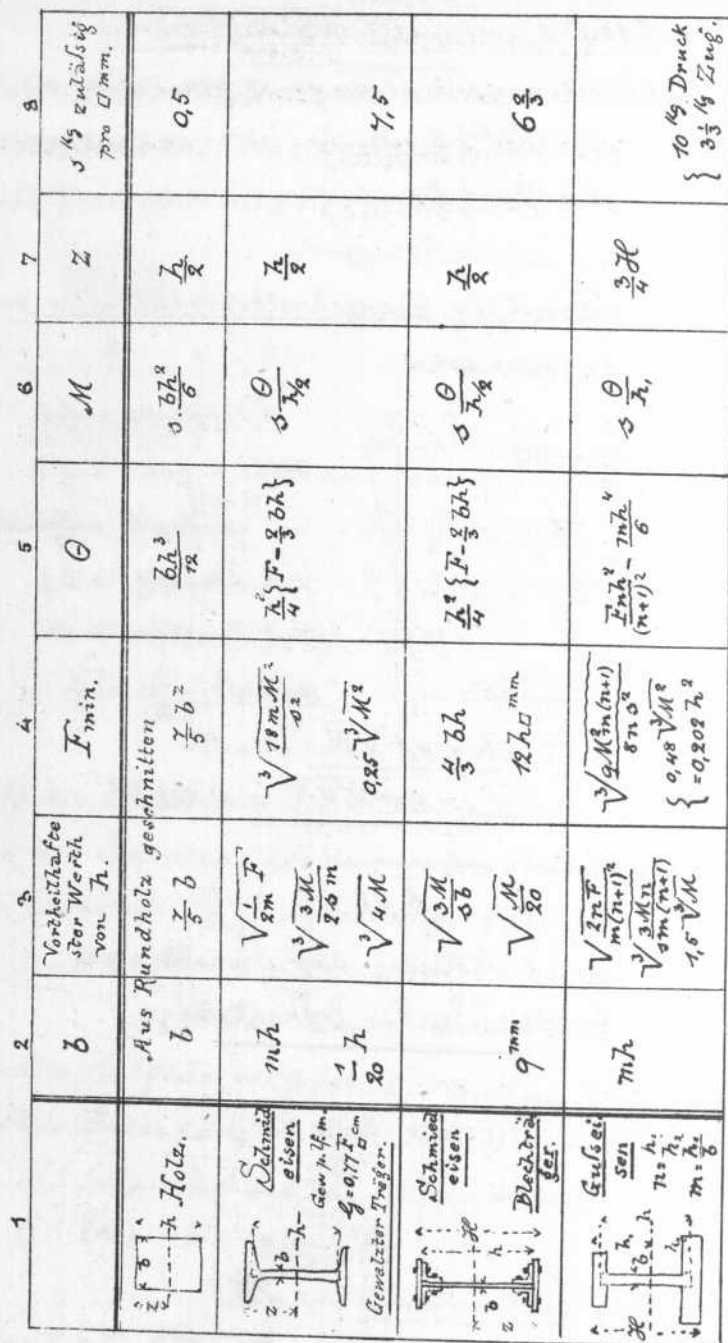 1
2
3
4
5
6
7
8
b
Vortheilhafte
ster Werth
von h
F min.
Θ
M
Z
s kg zuläſsig
pro □ mm.
Aus Rundholz geschnitten
Holz.
b
h
z
b
7/5 b
7/5 b²
bh³/12
s bh²/6
h/2
0,5
Schmied
eisen
Gew. 1 lf. m
G = 0,77 F □ cm
Gewalzter Träger.
z
b
h
mh
1/20 h
√(3/2m F)
∛(3M/2sm)
∛M
∛(18mM²/s²)
0,25 ∛M²
h²/4 {F - 2/3 bh}
s Θ/(h/2)
h/2
7,5
Schmied
eisen
Blechträ
ger.
H
h
b
z
9 mm
√(3M/sb)
√(M/20)
4/3 bh
12 h □ mm
h²/4 {F - 2/3 bh}
s Θ/(h/2)
h/2
6 2/3
Guſsei
sen
n = h₁/h₂
m = h₂/b
H
h
b
h
h₁
mh
√(2nF/m(n+1)²)
∛(3Mn/sm(n+1))
1,5 ∛M
∛(9M²m(n+1)/8ns²)
{ 0,48 ∛M²
= 0,202 h²
Fnh²/(n+1)² - mh⁴/6
s Θ/h₁
3/4 H
{ 10 kg Druck
3 1/3 kg Zug.